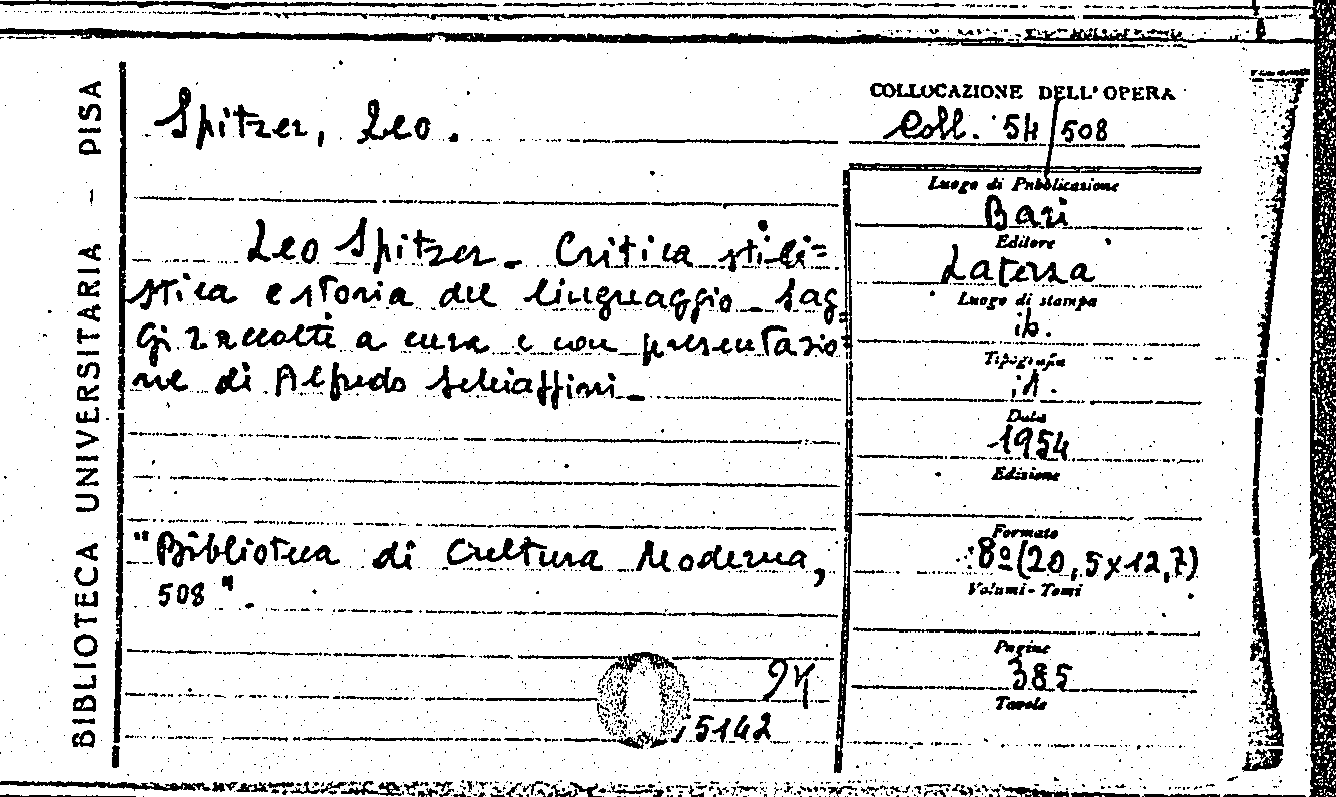 BIBLIOTECA UNIVERSITARIA - PISA
Spitzer, Leo.
COLLOCAZIONE DELL'OPERA
Coll. 54/508
Leo Spitzer - Critica stili=
stica e storia del linguaggio - Sag=
gi raccolti a cura e con presentazio=
ne di Alfredo Schiaffini -
"Biblioteca di Cultura Moderna,
508".
5142
Luogo di Pubblicazione
Bari
Editore
Laterza
Luogo di stampa
ib.
Tipografia
id.
Data
1954
Edizione
Formato
8º (20,5x12,7)
Volumi - Tomi
Pagine
385
Tavole